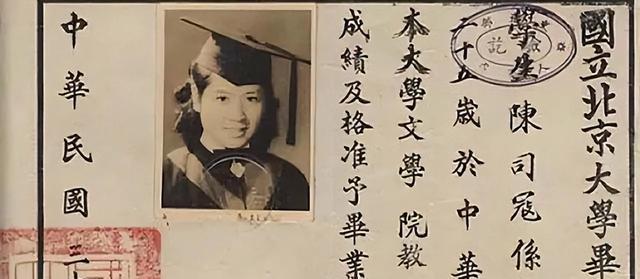 國立北京大學畢
學生陳司寇係
二十五歲於中華
本大學文學院教
成績及格准予畢業
中華民國三
記